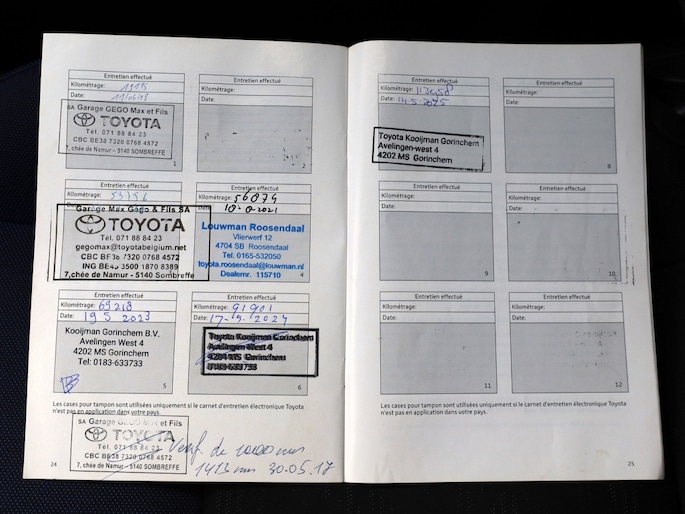 Entretien effectué
Kilométrage:
Date: 11/06/18
SA Garage GEGO Max et Fils
TOYOTA
Tél. 071 88 84 23
CBC BE38 7320 0768 4572
7, chée de Namur - 5140 SOMBREFFE
1
Entretien effectué
Kilométrage:
Date:
2
Entretien effectué
Kilométrage:
Garage Max Gego & Fils SA
TOYOTA
Tel. 071 88 84 23
gegomax@toyotabelgium.net
CBC BE38 7320 0768 4572
ING BE43 3500 1870 8389
7, chée de Namur - 5140 Sombreffe
Entretien effectué
Kilométrage: 56074
2021
Louwman Roosendaal
Vlierwerf 12
4704 SB Roosendaal
Tel. 0165-532050
toyota.roosendaal@louwman.nl
Dealernr. 115710
4
Entretien effectué
Kilométrage: 69218
Date: 19 5 2023
Kooijman Gorinchem B.V.
Avelingen West 4
4202 MS Gorinchem
Tel: 0183-633733
5
Entretien effectué
Kilométrage: 91901
Date: 17-5-2024
Toyota Kooijman Gorinchem
Avelingen West 4
4204 MS Gorinchem
0183-633733
6
Les cases pour tampon sont utilisées uniquement si le carnet d'entretien électronique Toyota
n'est pas en application dans votre pays.
SA Garage GEGO Max et Fils
TOYOTA
Tél. 071 88 84 23
CBC BE38 7320 0768 4572
7, chée de Namur - 5140 SOMBREFFE
Verif. de 10000
30.05.17
24
Entretien effectué
Kilométrage:
Date: 14.5.2025
Toyota Kooijman Gorinchem
Avelingen-west 4
4202 MS Gorinchem
Entretien effectué
Kilométrage:
Date:
8
Entretien effectué
Kilométrage:
Date:
9
Entretien effectué
Kilométrage:
Date:
10
Entretien effectué
Kilométrage:
Date:
11
Entretien effectué
Kilométrage:
Date:
12
Les cases pour tampon sont utilisées uniquement si le carnet d'entretien électronique Toyota
n'est pas en application dans votre pays.
25